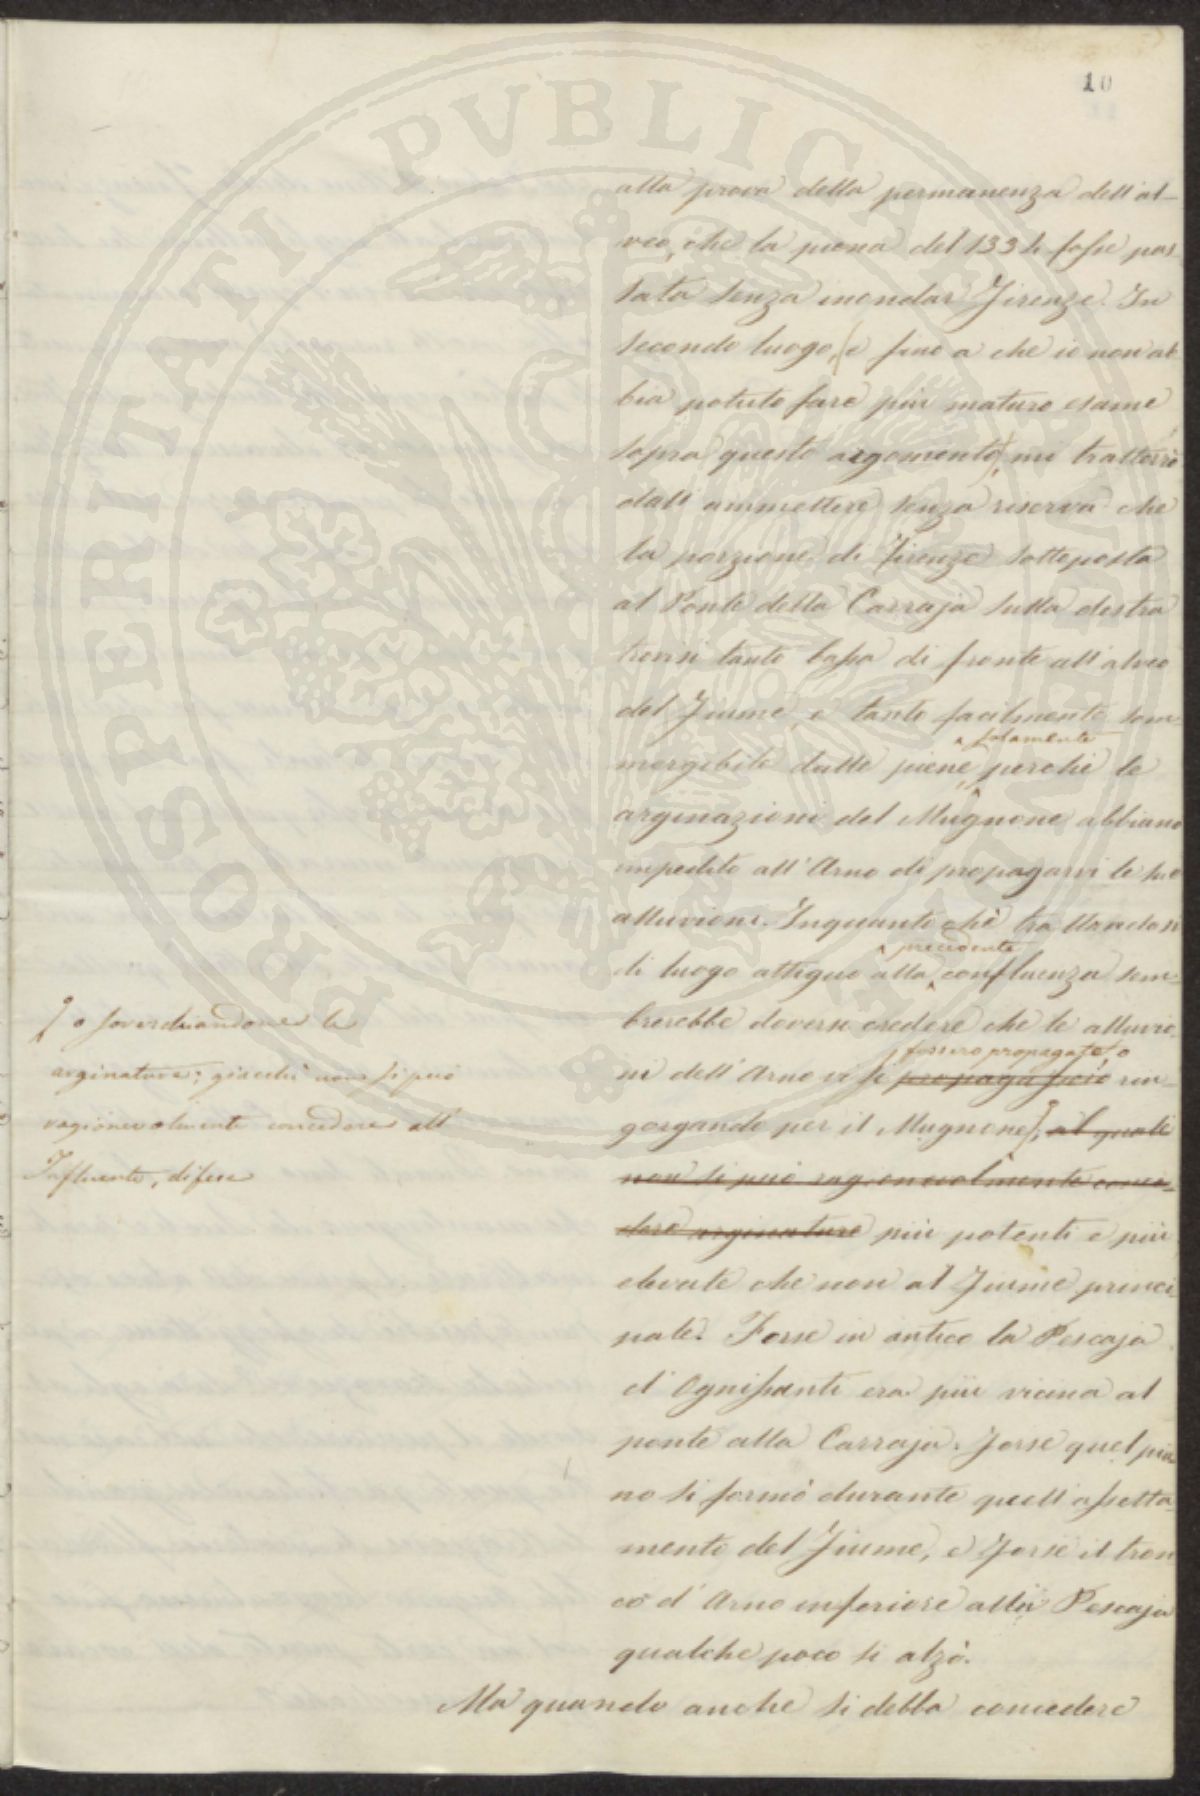 PROSPERITATI PVBLICAE AVGENDAE
10
alla prova della permanenza dell'al-
veo, che la piena del 1334 fosse pas-
sata senza inondar Firenze. In
secondo luogo, (e fino a che io non ab
bia potuto fare più maturo esame
sopra questo argomento) mi tratterrò
dall'ammettere senza riserva che
la porzione di Firenze sottoposta
al Ponte della Carraja sulla destra
trovisi tanto bassa di fronte all'alveo
del Fiume, e tanto facilmente som
solamente
mergibile dalle piene, perchè le
arginazioni del Mugnone abbiano
impedito all'Arno di propagarvi le sue
alluvioni. Inquanto chè trattandosi
precedente
di luogo attiguo alla confluenza sem-
brerebbe doversi credere che le alluvio-
fossero propagate o
ni dell'Arno vi si propagassero rin-
gorgando per il Mugnone, al quale
non si può ragionevolmente conce-
dere arginature più potenti e più
elevate che non al Fiume princi
pale. Forse in antico la Pescaja
d'Ognissanti era più vicina al
ponte alla Carraja. Forse quel pia
no si formò durante quell'assetta-
mento del Fiume, e forse il tron
co d'Arno inferiore alla Pescaja
qualche poco si alzò.
Ma quando anche si debba concedere
o soverchiandone le
arginature; giacchè non si può
ragionevolmente concedere all'
Influente, difese